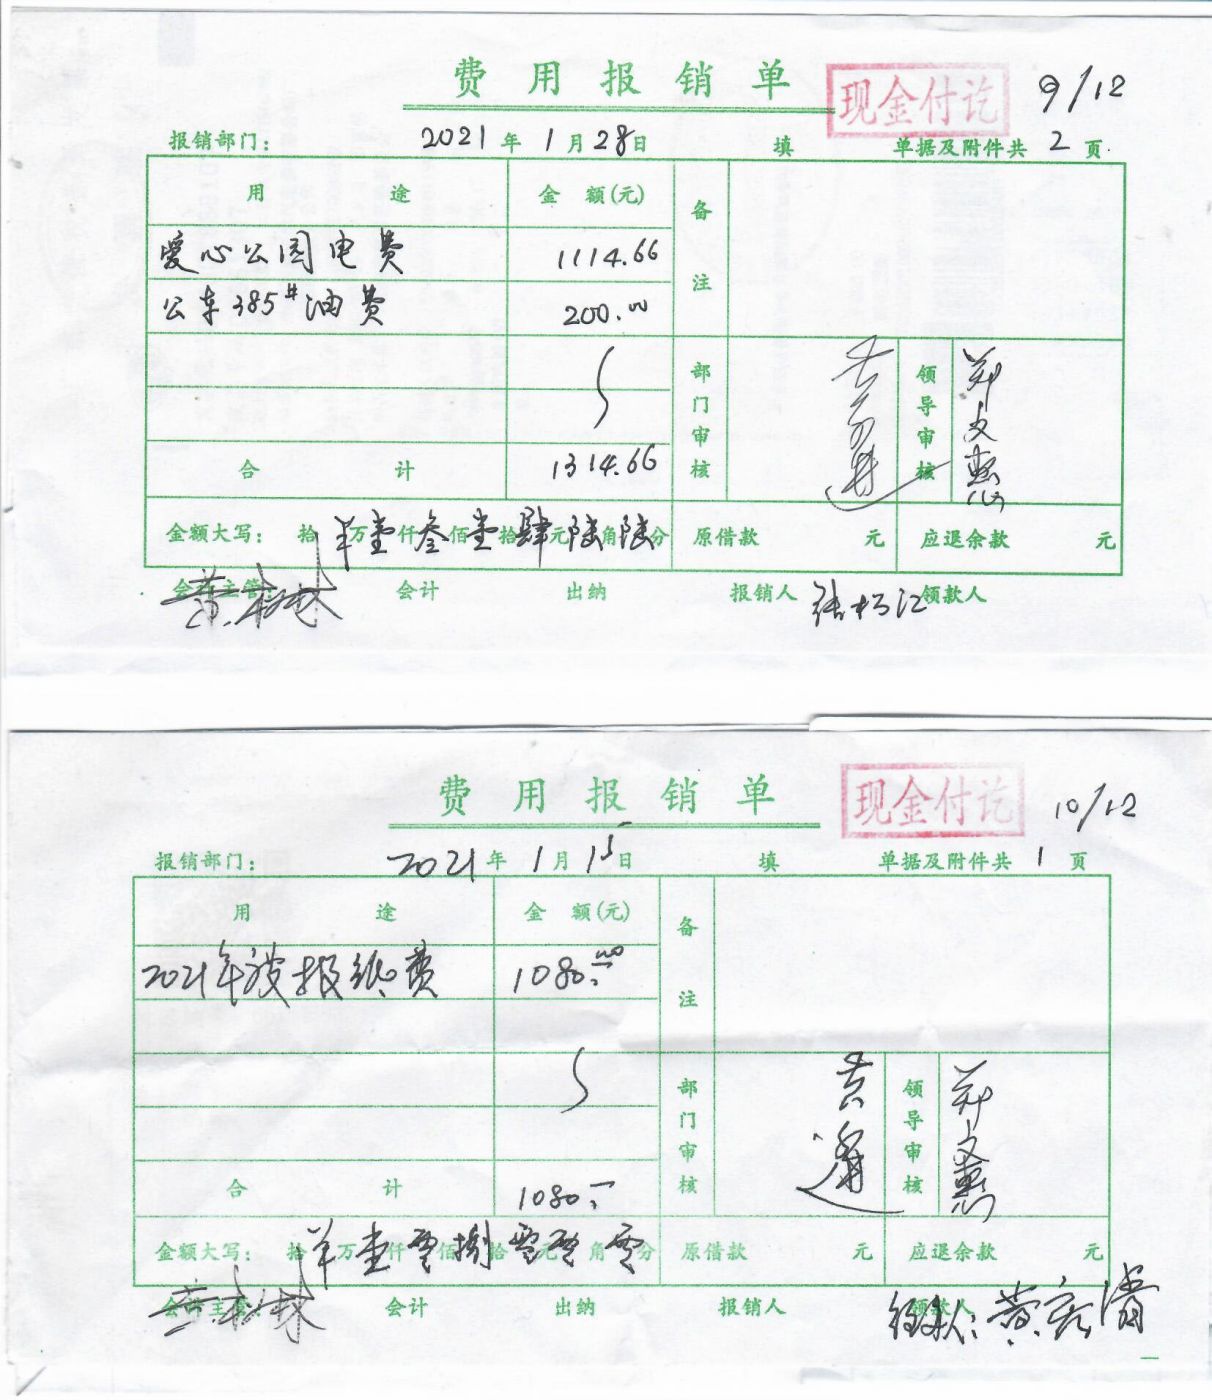 费用报销单
现金付讫
9/12
报销部门： 2021年1月28日 填 单据及附件共2页.
用途 金额(元) 备注
爱心公园电费 1114.66
公车385#油费 200.00
部门审核 领导审核 郑文惠
合计 1314.66
金额大写： 拾 羊 万 壹 仟 叁 佰 壹 拾 肆 元 陆 角 陆 分 原借款 元 应退余款 元
会计主管 会计 出纳 报销人 张杨江 领款人
费用报销单
现金付讫
10/12
报销部门： 2021年1月15日 填 单据及附件共1页
用途 金额(元) 备注
2021年 报纸费 1080.00
部门审核 领导审核 郑文惠
合计 1080.-
金额大写： 拾 羊 万 壹 仟 零 佰 捌 拾 零 元 零 角 零 分 原借款 元 应退余款 元
会计主管 会计 出纳 报销人 领款人